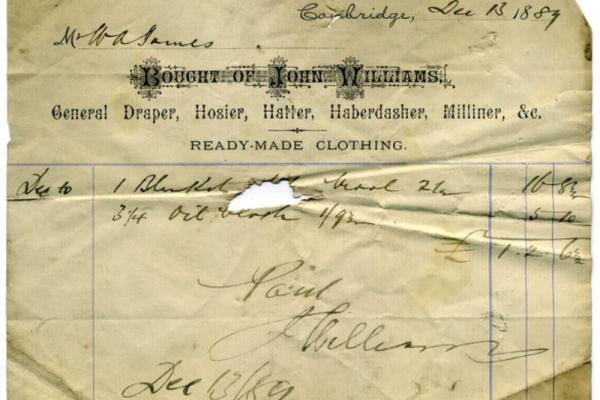 Cowbridge, Dec 13 1889
Mr W A James
BOUGHT OF JOHN WILLIAMS,
General Draper, Hosier, Hatter, Haberdasher, Milliner, &c.
READY-MADE CLOTHING.
Dec 10 1 Blanket wool 16 8½
3¼ Oil Cloth 1/9½ 5 10
£ 1. 2. 6½
Paid
J Williams
Dec 13/89